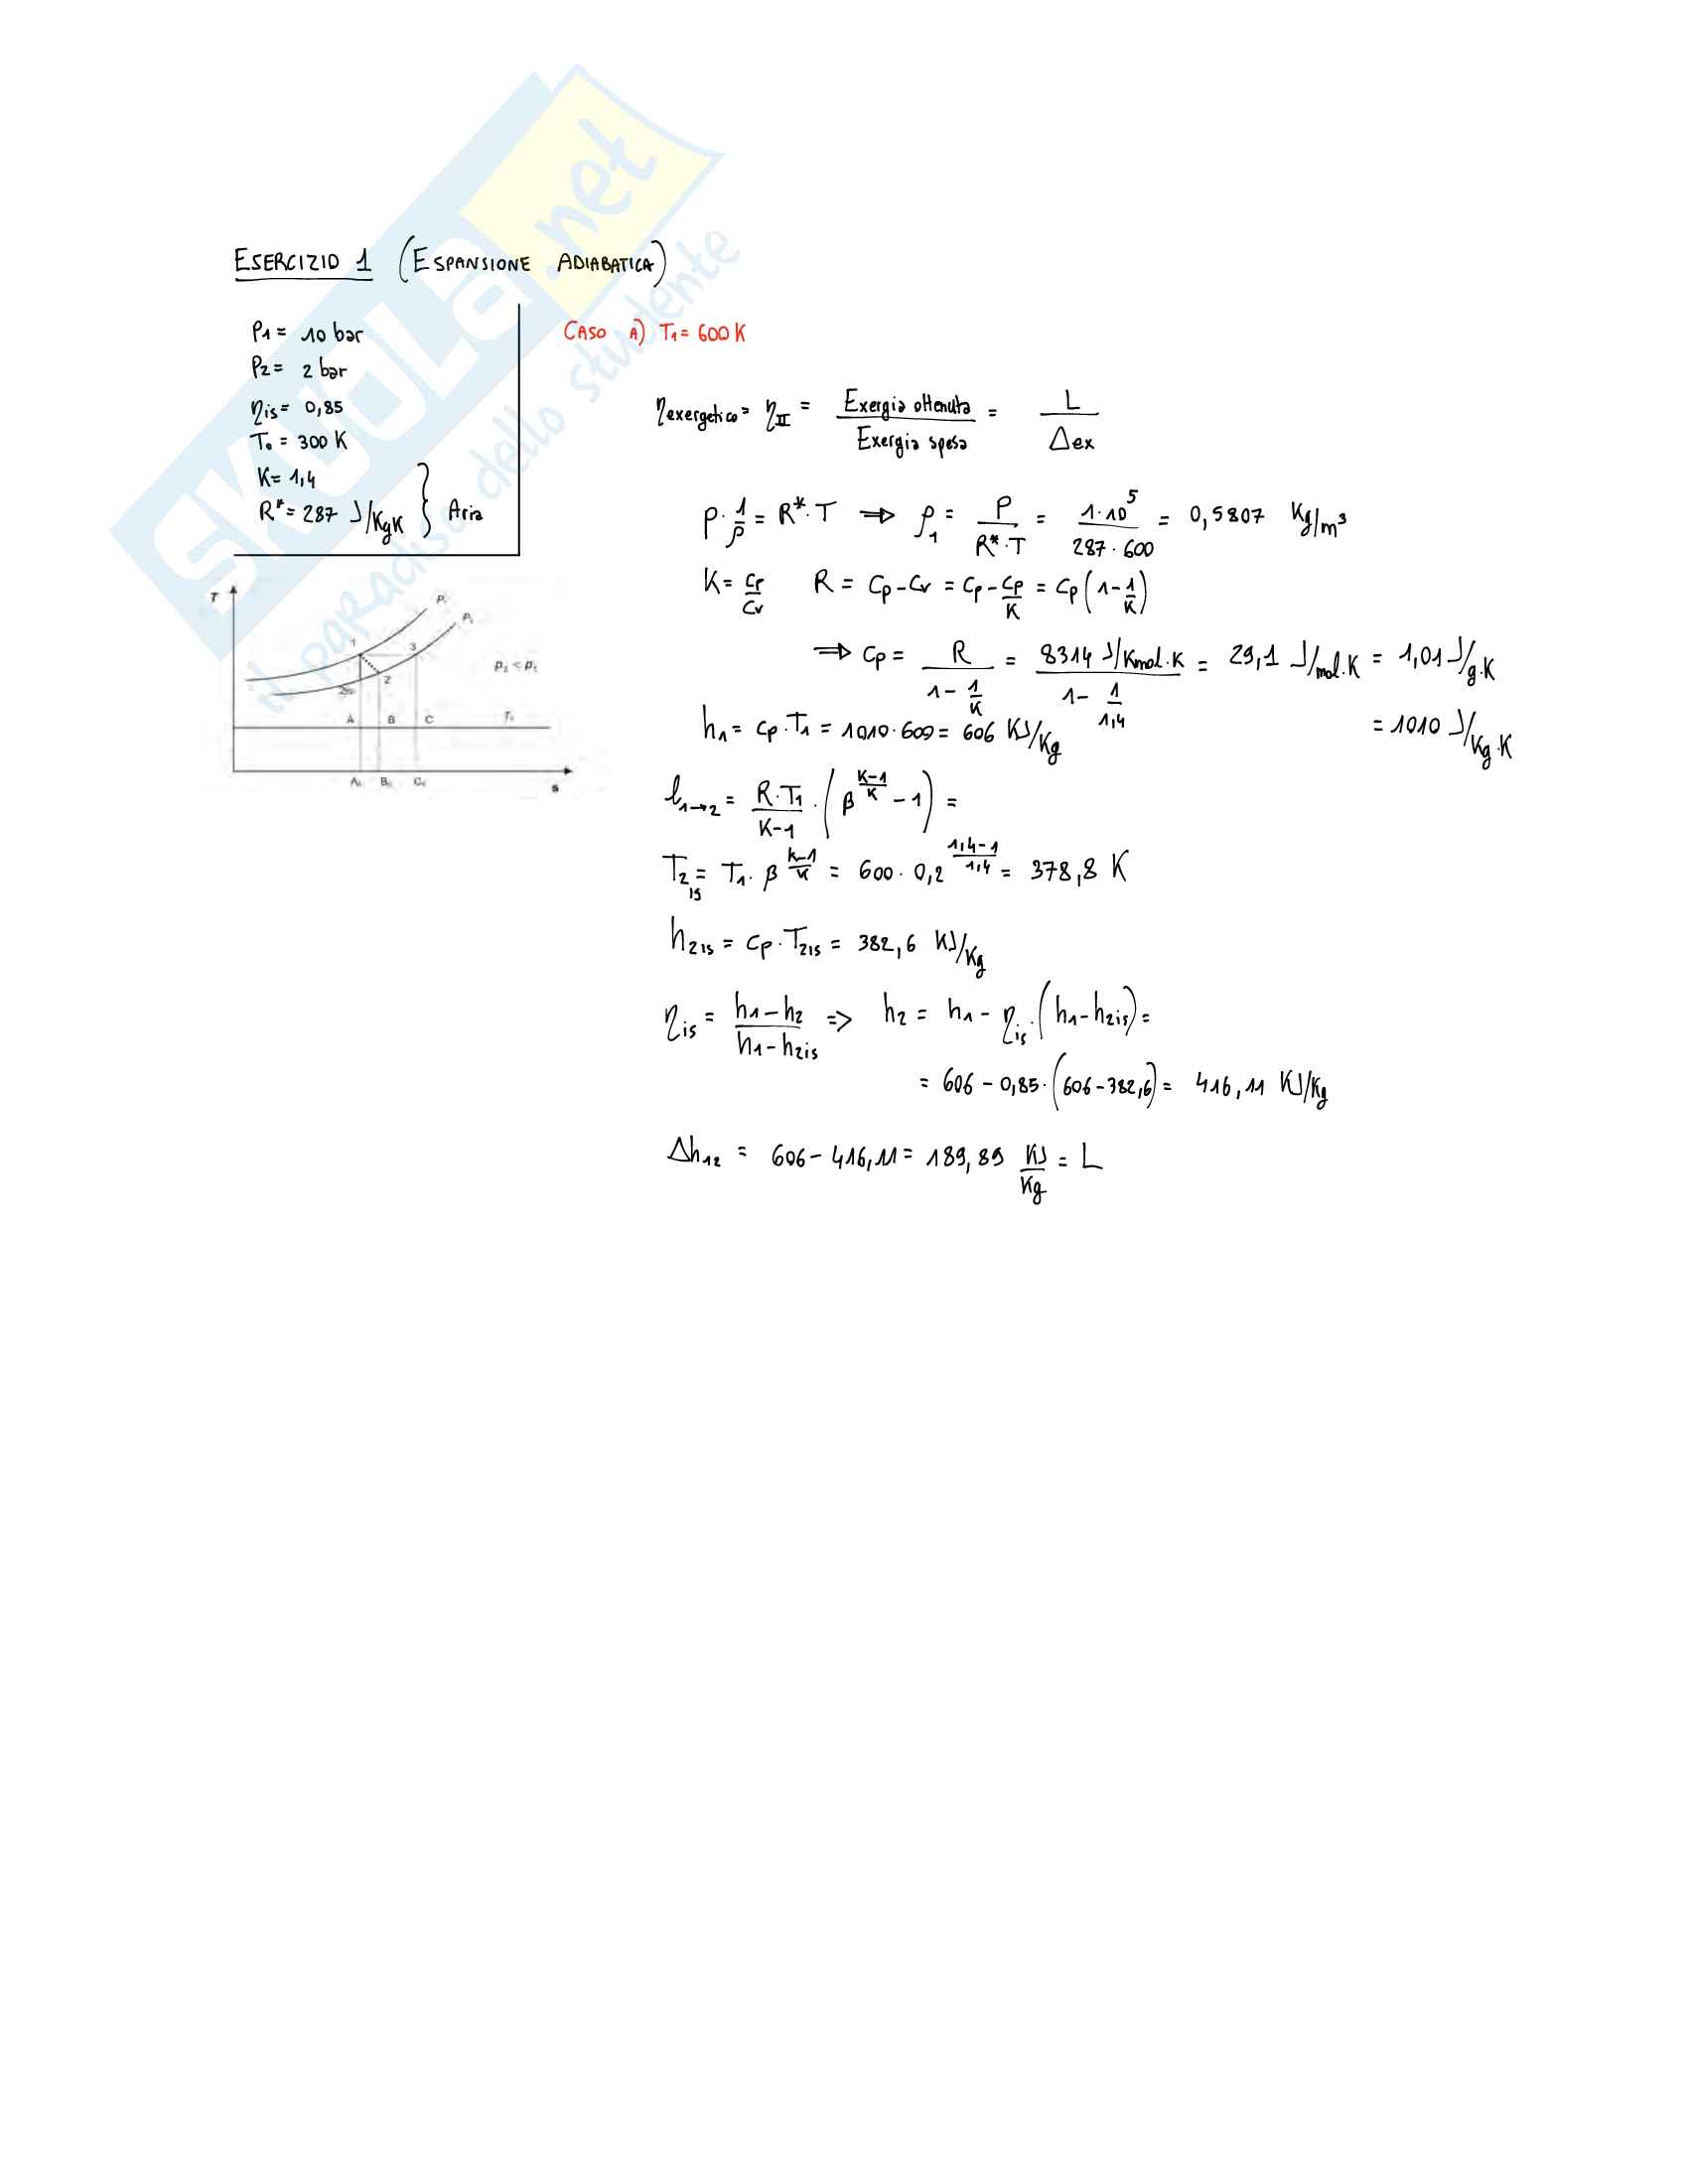 SKUOLA.net
il paradiso dello studente
ESERCIZIO 1 (ESPANSIONE ADIABATICA)
P1 = 10 bar
P2 = 2 bar
ηis = 0,85
T0 = 300 K
K = 1,4
R* = 287 J/KgK } Aria
CASO A) T1 = 600 K
ηexergetico = ηII = Exergia ottenuta / Exergia spesa = L / Δex
P · 1/ρ = R* · T ⇒ ρ1 = P / R*·T = 1·10^5 / 287·600 = 0,5807 Kg/m³
K = cp/cv R = cp - cv = cp - cp/K = cp (1 - 1/K)
⇒ cp = R / 1 - 1/K = 8314 J/Kmol·K / 1 - 1/1,4 = 29,1 J/mol·K = 1,01 J/g·K
= 1010 J/Kg·K
h1 = cp · T1 = 1010 · 600 = 606 KJ/Kg
l1→2 = R·T1 / K-1 · (β^(K-1/K) - 1) =
T2is = T1 · β^(K-1/K) = 600 · 0,2^(1,4-1/1,4) = 378,8 K
h2is = cp · T2is = 382,6 KJ/Kg
ηis = h1 - h2 / h1 - h2is => h2 = h1 - ηis · (h1 - h2is) =
= 606 - 0,85 · (606 - 382,6) = 416,11 KJ/Kg
Δh12 = 606 - 416,11 = 189,89 KJ/Kg = L
T
1
3
2
p2 < p1
A B C T0
s